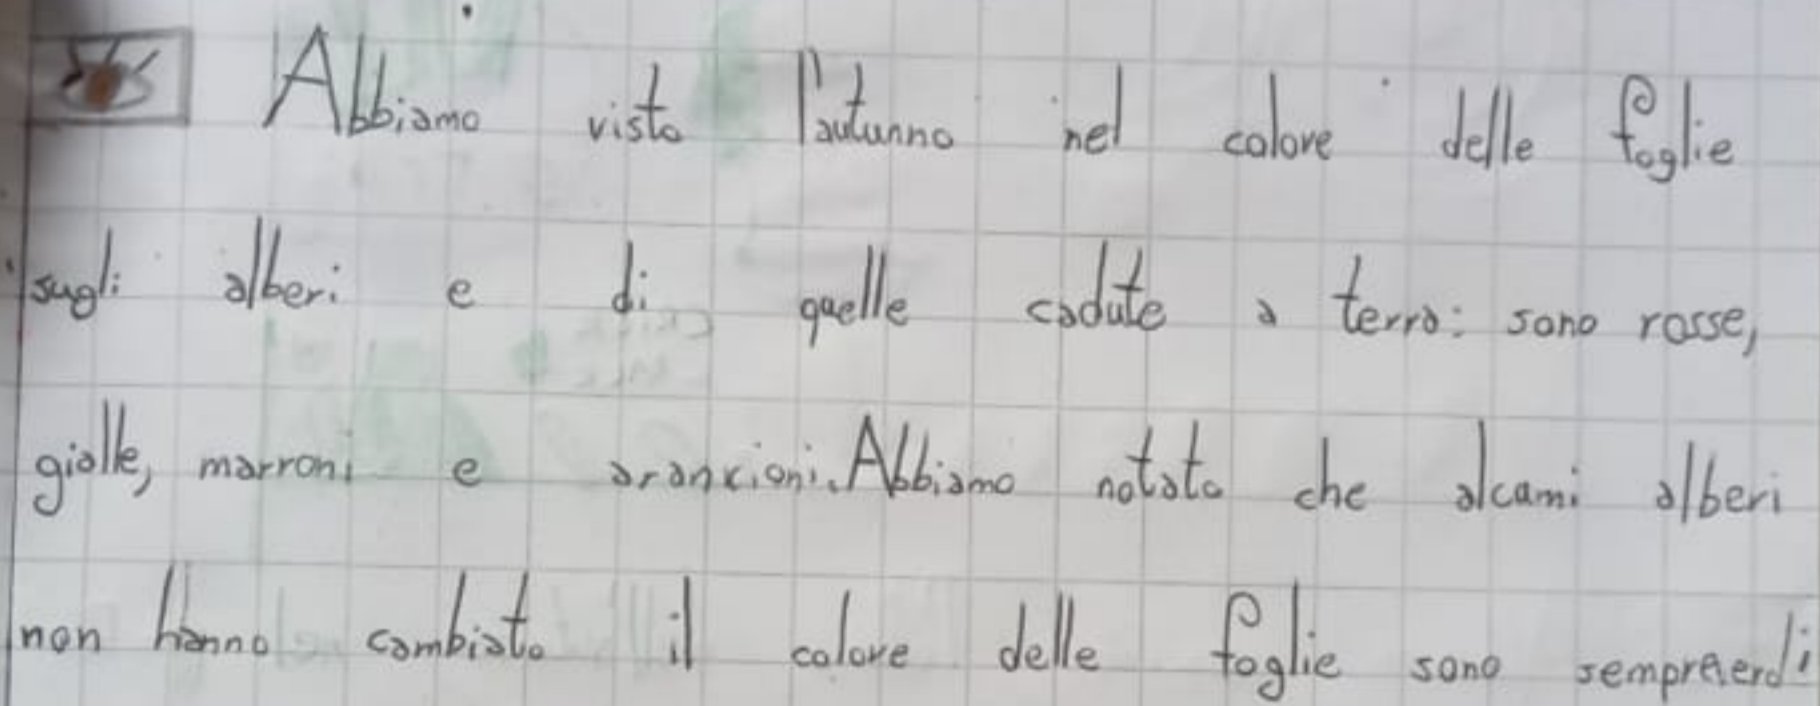 Abbiamo visto l'autunno nel colore delle foglie
sugli alberi e di quelle cadute a terra: sono rosse,
gialle, marroni e arancioni. Abbiamo notato che alcami alberi
non hanno cambiato il colore delle foglie sono sempreverdi